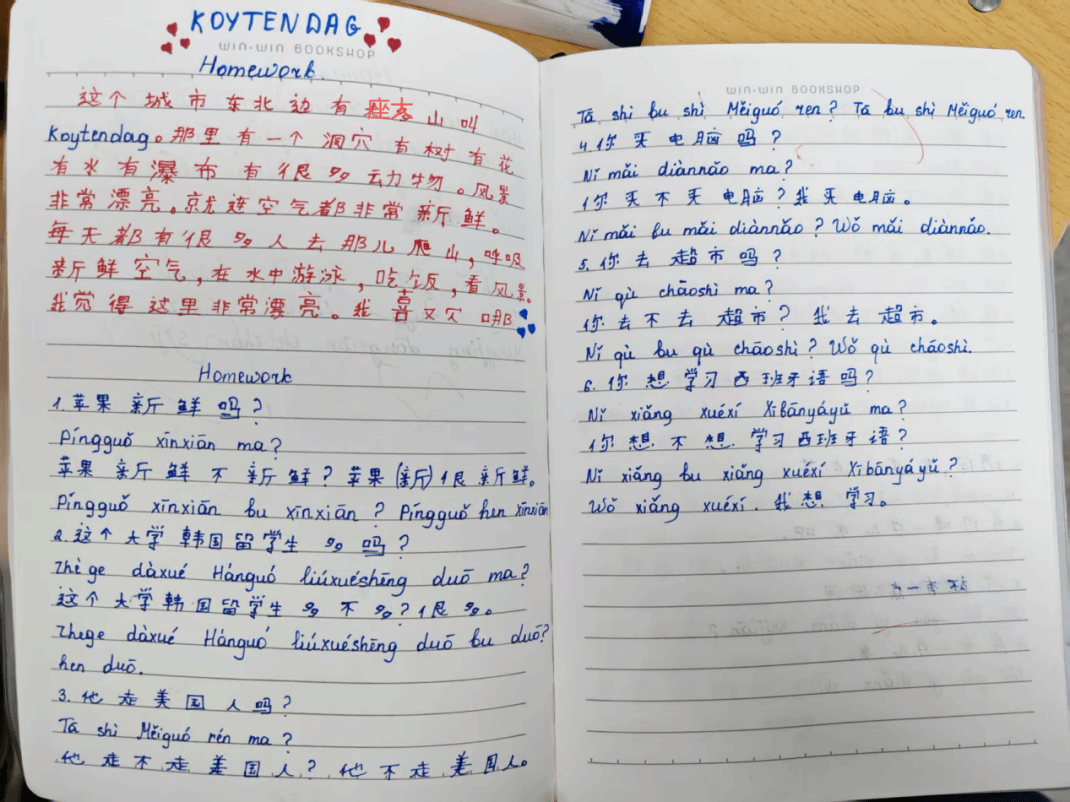 KOYTENDAG
WIN-WIN BOOKSHOP
Homework.
这个城市东北边有座 山叫
Koytendag。那里有一个洞穴 有树有花
有水有瀑布有很多动物。风景
非常漂亮。就连空气都非常新鲜。
每天都有很多人去那儿爬山,呼吸
新鲜空气,在水中游泳,吃饭,看风景。
我觉得这里非常漂亮。我喜又穴哪
Homework
1.苹果新鲜吗?
Píngguǒ xīnxiān ma?
苹果新鲜不新鲜?苹果(新)很新鲜。
Píngguǒ xīnxiān bu xīnxiān? Píngguǒ hen xīnxiān
2.这个大学韩国留学生多吗?
Zhè ge dàxué Hánguó liúxuéshēng duō ma?
这个大学韩国留学生多不多?很多。
Zhege dàxué Hánguó liúxuéshēng duō bu duō?
hen duō.
3.他走美国人吗?
Tā shì Měiguó rén ma?
他走不走美国人?他不走美国人。
WIN-WIN BOOKSHOP
Tā shì bu shì Měiguó ren? Tā bu shì Měiguó ren.
4.你买电脑吗?
Nǐ mǎi diànnǎo ma?
你买不买电脑?我买电脑。
Nǐ mǎi bu mǎi diànnǎo? Wǒ mǎi diànnǎo.
5.你去超市吗?
Nǐ qù chāoshì ma?
你去不去超市?我去超市。
Nǐ qù bu qù chāoshì? Wǒ qù chāoshì.
6.你想学习西班牙语吗?
Nǐ xiǎng xuéxí Xībānyáyǔ ma?
你想不想学习西班牙语?
Nǐ xiǎng bu xiǎng xuéxí Xībānyáyǔ?
Wǒ xiǎng xuéxí. 我想学习。